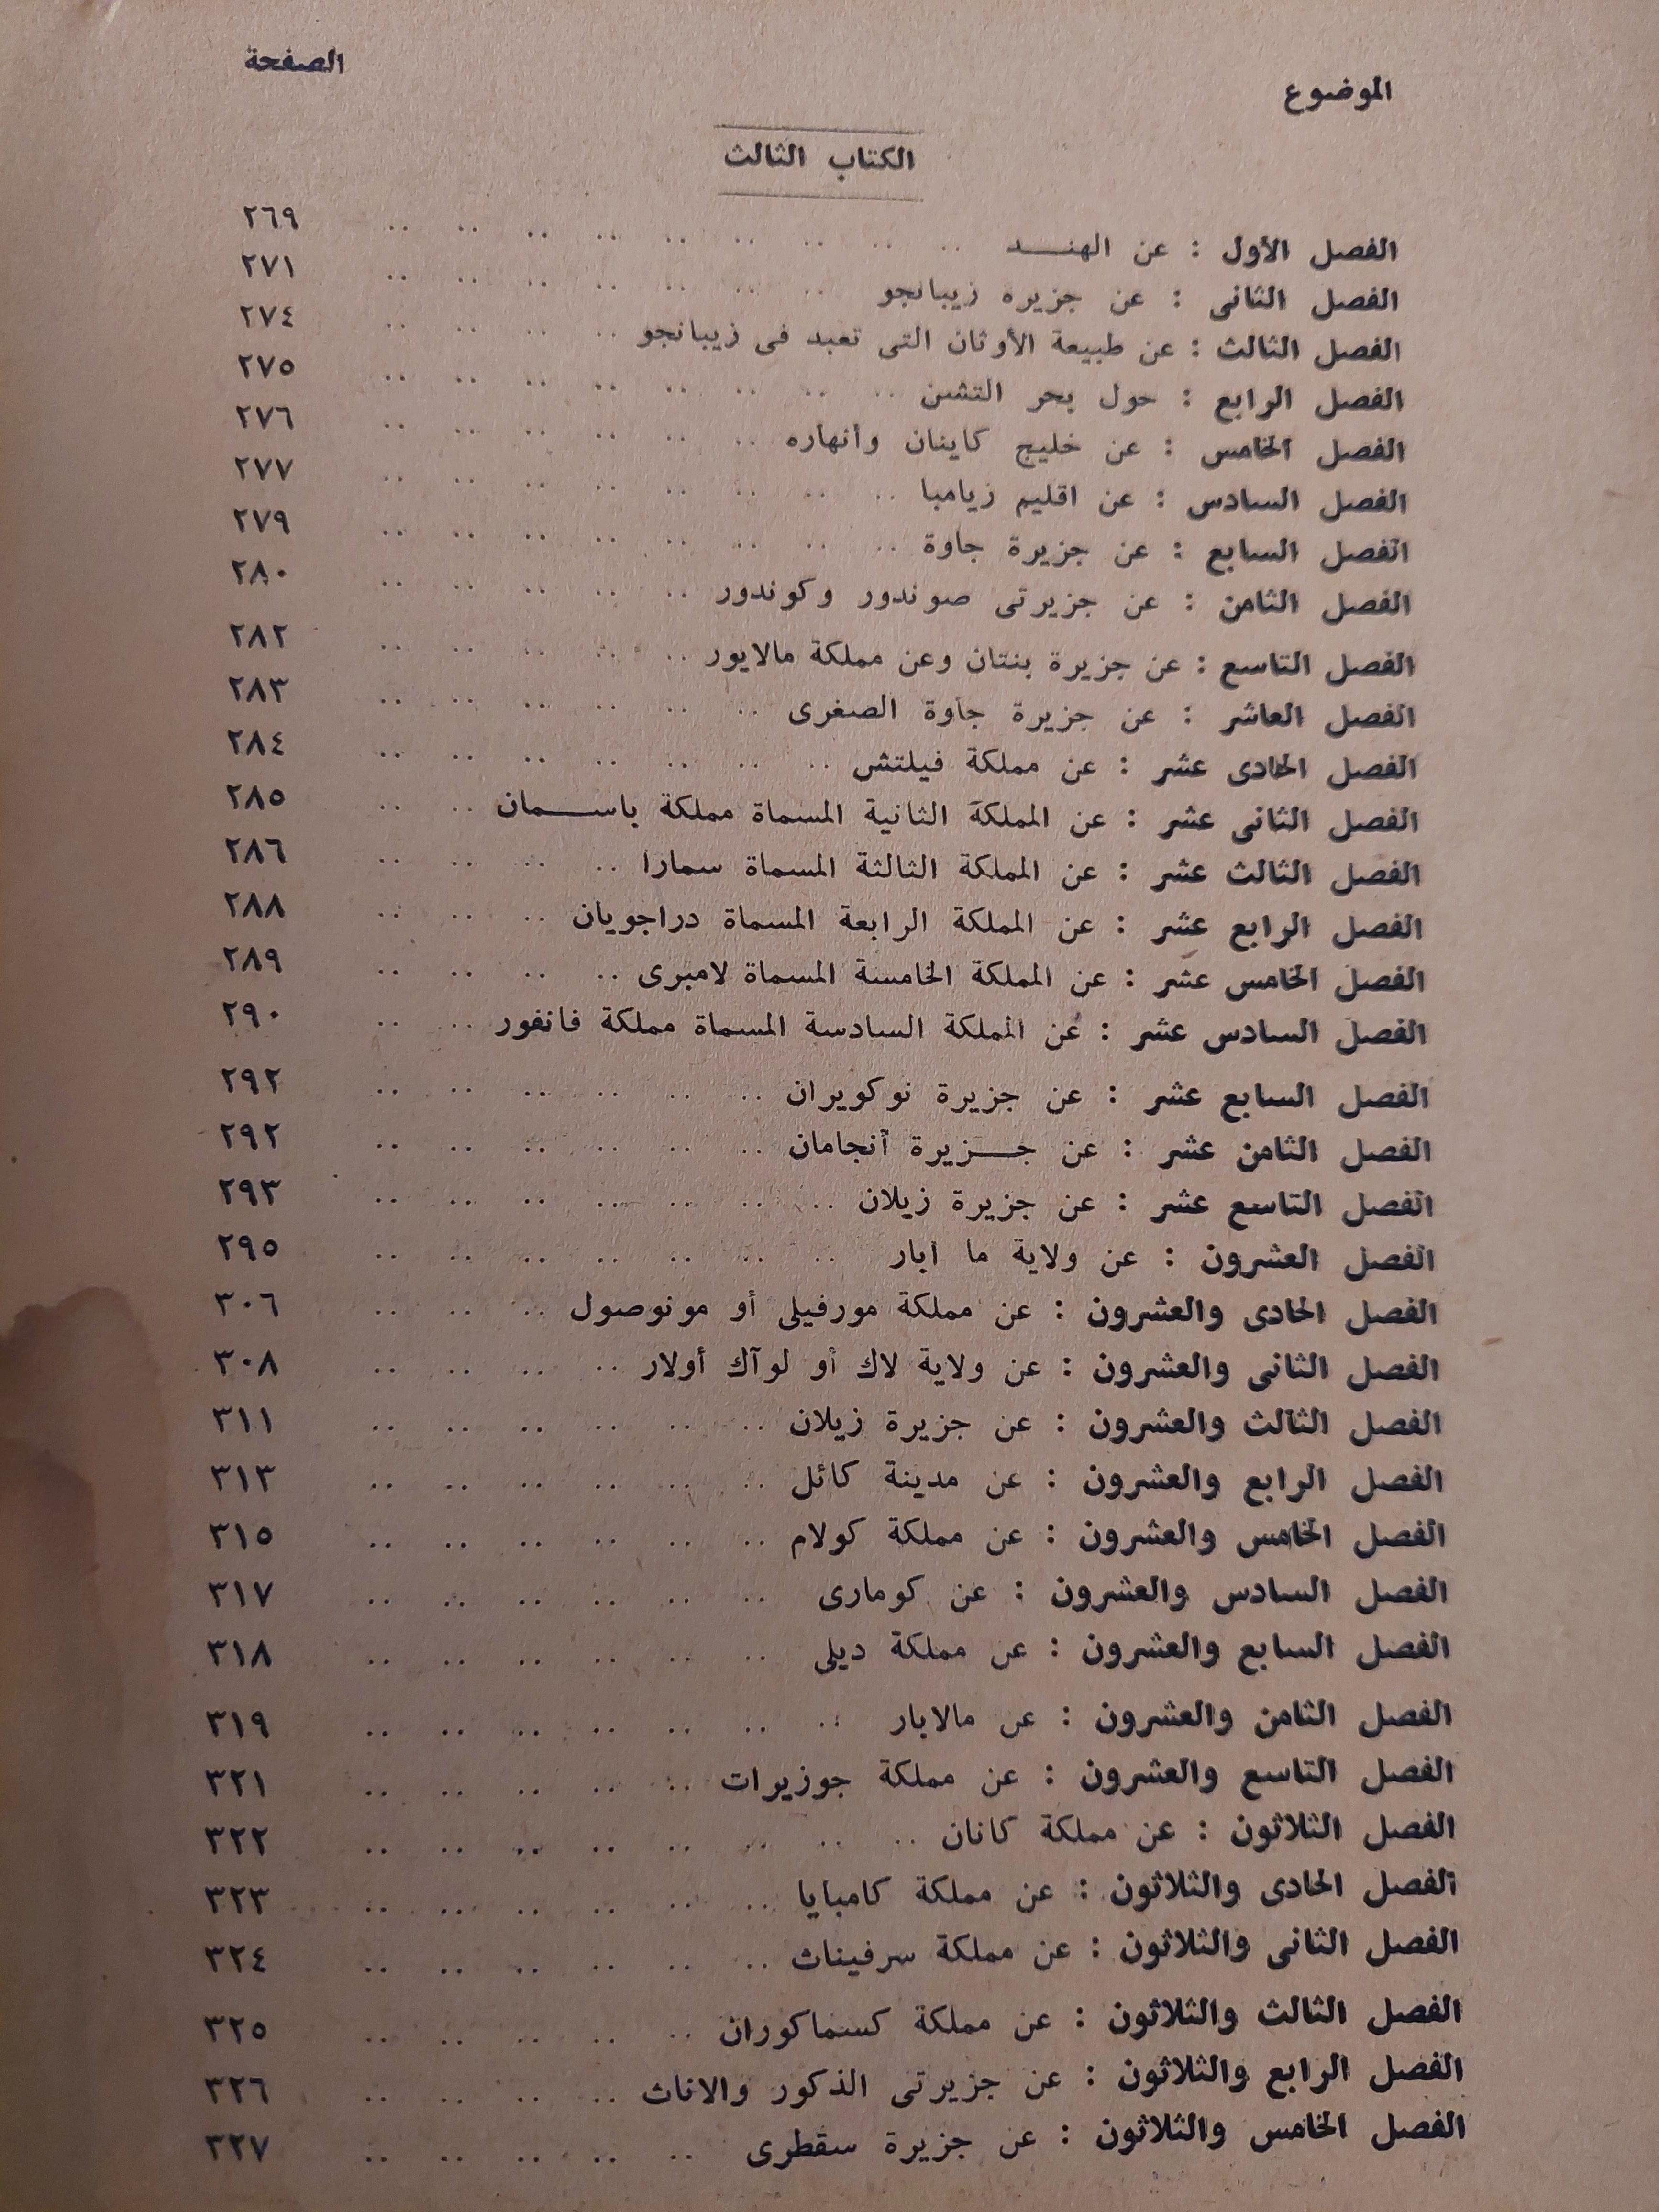 الموضوع الصفحة
الكتاب الثالث
الفصل الأول : عن الهنـــد ٢٦٩
الفصل الثانى : عن جزيرة زيبانجو ٢٧١
الفصل الثالث : عن طبيعة الأوثان التى تعبد فى زيبانجو ٢٧٤
الفصل الرابع : حول بحر التشين ٢٧٥
الفصل الخامس : عن خليج كاينان وأنهاره ٢٧٦
الفصل السادس : عن اقليم زيامبا ٢٧٧
الفصل السابع : عن جزيرة جاوة ٢٧٩
الفصل الثامن : عن جزيرتى صوندور وكوندور ٢٨٠
الفصل التاسع : عن جزيرة بنتان وعن مملكة مالايور ٢٨٢
الفصل العاشر : عن جزيرة جاوة الصغرى ٢٨٣
الفصل الحادى عشر : عن مملكة فيلتش ٢٨٤
الفصل الثانى عشر : عن المملكة الثانية المسماة مملكة باســـمان ٢٨٥
الفصل الثالث عشر : عن المملكة الثالثة المسماة سمارا ٢٨٦
الفصل الرابع عشر : عن المملكة الرابعة المسماة دراجويان ٢٨٨
الفصل الخامس عشر : عن المملكة الخامسة المسماة لامبرى ٢٨٩
الفصل السادس عشر : عن المملكة السادسة المسماة مملكة فانفور ٢٩٠
الفصل السابع عشر : عن جزيرة نوكويران ٢٩٢
الفصل الثامن عشر : عن جـــزيرة أنجامان ٢٩٢
الفصل التاسع عشر : عن جزيرة زيلان ٢٩٣
الفصل العشرون : عن ولاية ما ابار ٢٩٥
الفصل الحادى والعشرون : عن مملكة مورفيلى أو مونوصول ٣٠٦
الفصل الثانى والعشرون : عن ولاية لاك أو لوآك أولار ٣٠٨
الفصل الثالث والعشرون : عن جزيرة زيلان ٣١١
الفصل الرابع والعشرون : عن مدينة كائل ٣١٣
الفصل الخامس والعشرون : عن مملكة كولام ٣١٥
الفصل السادس والعشرون : عن كومارى ٣١٧
الفصل السابع والعشرون : عن مملكة ديلى ٣١٨
الفصل الثامن والعشرون : عن مالابار ٣١٩
الفصل التاسع والعشرون : عن مملكة جوزيرات ٣٢١
الفصل الثلاثون : عن مملكة كانان ٣٢٢
الفصل الحادى والثلاثون : عن مملكة كامبايا ٣٢٣
الفصل الثانى والثلاثون : عن مملكة سرفيناث ٣٢٤
الفصل الثالث والثلاثون : عن مملكة كسماكوران ٣٢٥
الفصل الرابع والثلاثون : عن جزيرتى الذكور والاناث ٣٢٦
الفصل الخامس والثلاثون : عن جزيرة سقطرى ٣٢٧